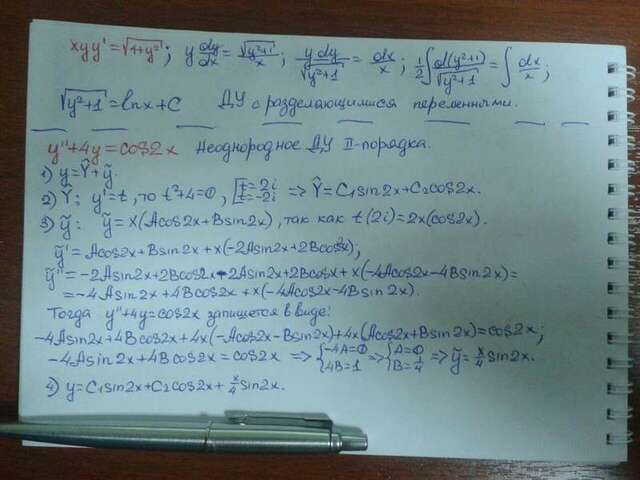 xyy' = √(1+y²); y dy/dx = √(y²+1)/x; y dy/√(y²+1) = dx/x; 1/2 ∫ d(y²+1)/√(y²+1) = ∫ dx/x;
√(y²+1) = ln x + C ДУ с разделяющимися переменными.
y''+4y=cos2x Неоднородное ДУ II-порядка.
1) y=Ŷ+ỹ.
2) Ŷ: y'=t, то t²+4=0, [t=2i t=-2i => Ŷ=C₁sin2x+C₂cos2x.
3) ỹ: ỹ=x(Acos2x+Bsin2x), так как t(2i)=2x(cos2x).
ỹ'=Acos2x+Bsin2x+x(-2Asin2x+2Bcos2x);
ỹ''=-2Asin2x+2Bcos2x-2Asin2x+2Bcos2x+x(-4Acos2x-4Bsin2x)=
=-4Asin2x+4Bcos2x+x(-4Acos2x-4Bsin2x).
Тогда y''+4y=cos2x запишется в виде:
-4Asin2x+4Bcos2x+4x(-Acos2x-Bsin2x)+4x(Acos2x+Bsin2x)=cos2x;
-4Asin2x+4Bcos2x=cos2x => {-4A=0 4B=1 => {A=0 B=1/4 => ỹ=x/4 sin2x.
4) y=C₁sin2x+C₂cos2x+x/4 sin2x.